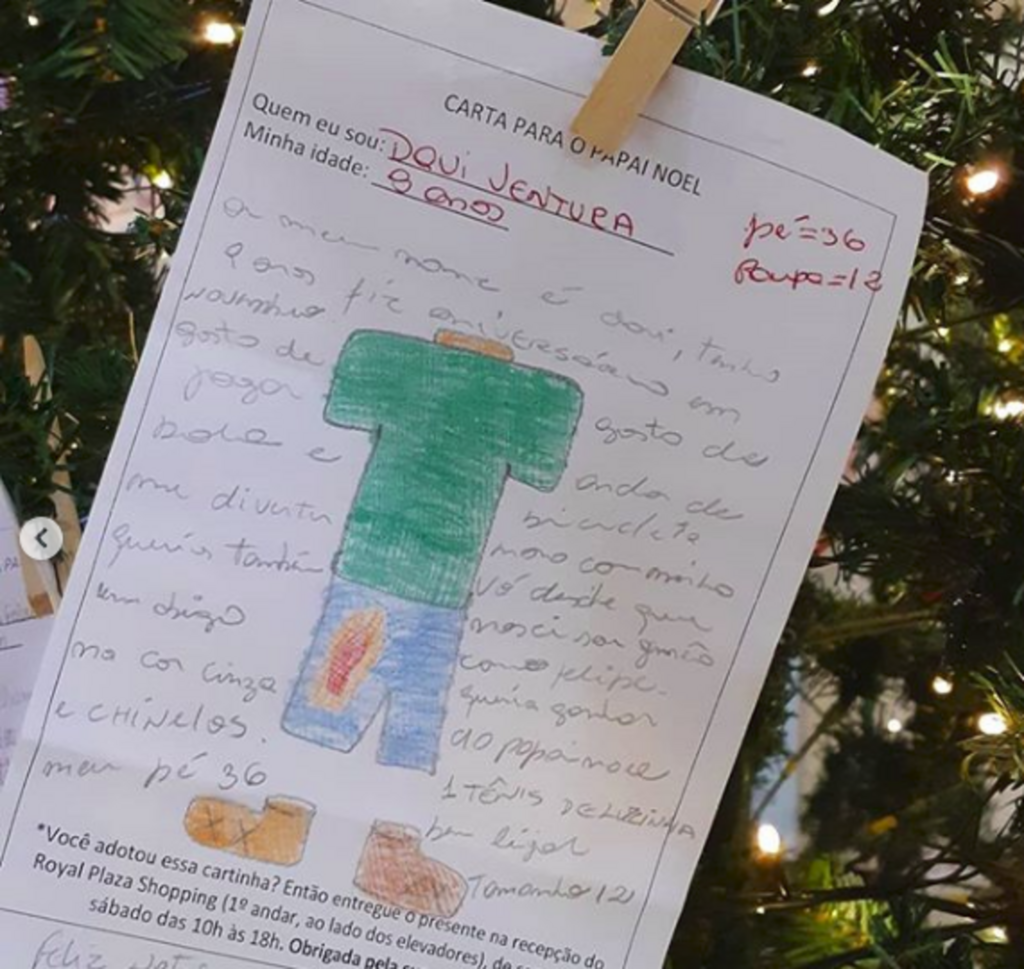 CARTA PARA O PAPAI NOEL
Quem eu sou: DAVI VENTURA
Minha idade: 9 anos
pé=36
Roupa=12
o meu nome é davi, tenho
9 anos fiz aniversário em
novembro
gosto de
jogar
bola e
me divertir
queria também
um
na cor cinza
e CHINELOS.
meu pé 36
gosto de
anda de
bicicleta
moro com minha
vó desde que
nasci sou
como felipe.
queria ganhar
do papai noel
1 TÊNIS DE LUZINHA
bem ligal
Tamanho 12
*Você adotou essa cartinha? Então entregue o presente na recepção do
Royal Plaza Shopping (1º andar, ao lado dos elevadores), de
sábado das 10h às 18h. Obrigada pela
Feliz